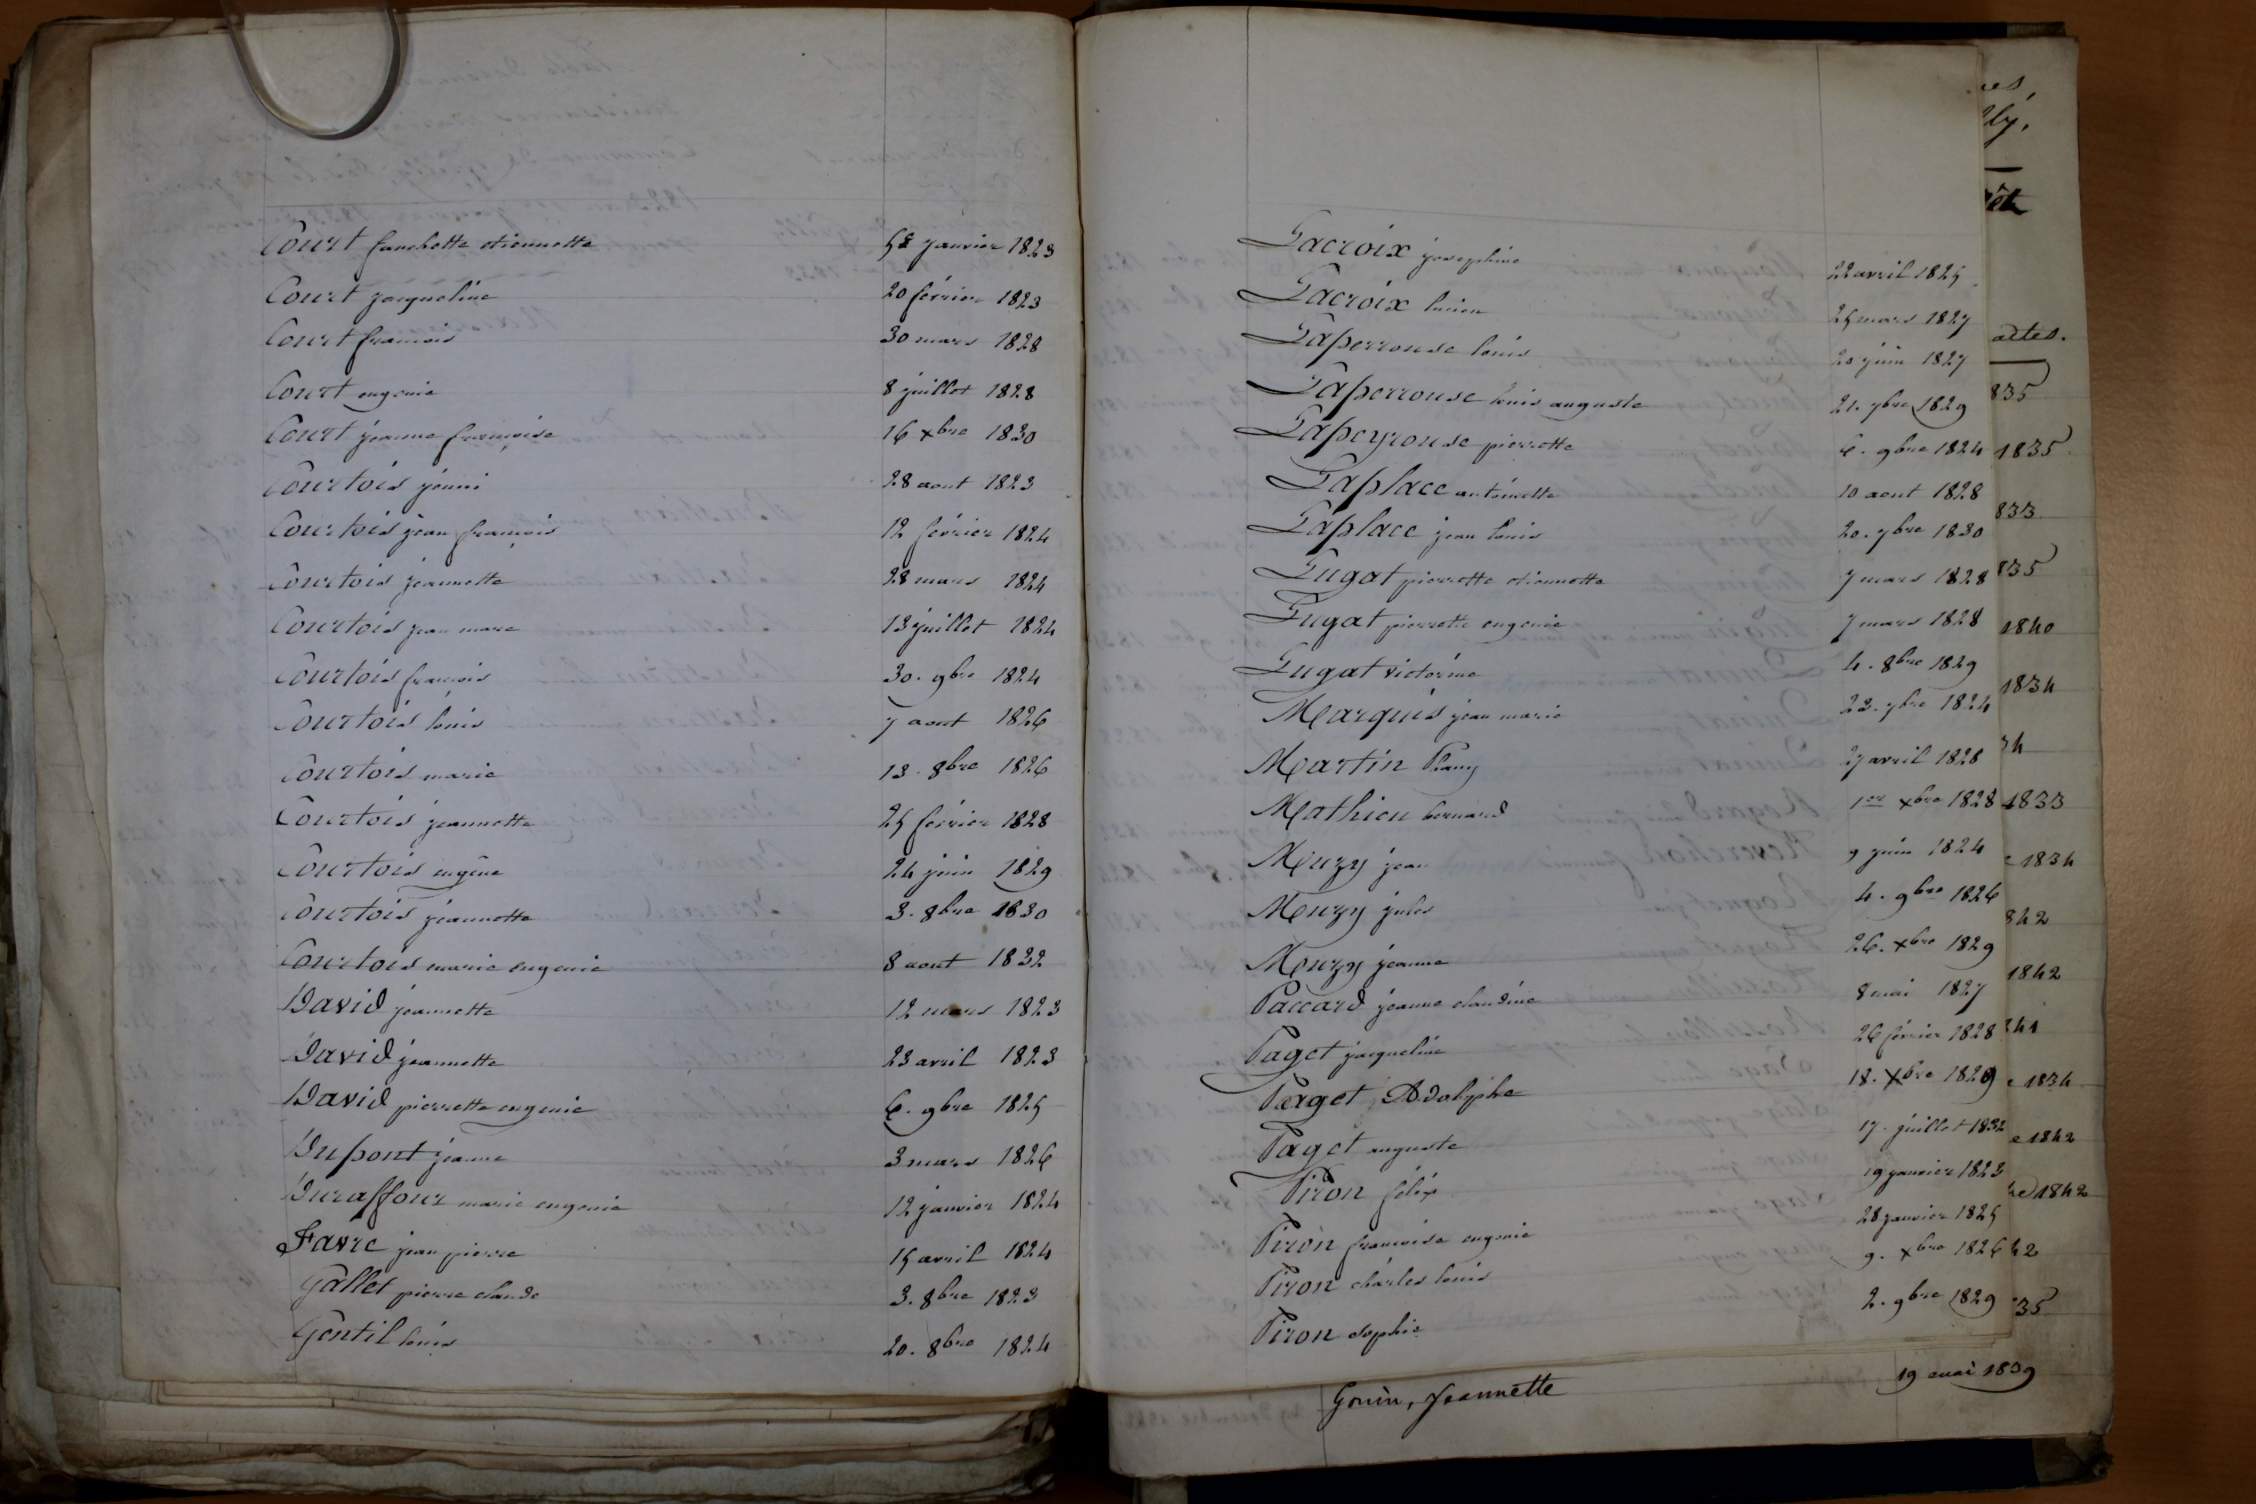 Court fanchette etiennette 58 janvier 1823
Court jacqueline 20 février 1823
Court francois 30 mars 1828
Court eugenie 8 juillet 1828
Court jeanne françoise 16 xbre 1830
Courtois jenni 28 aout 1823
Courtois jean françois 12 février 1824
Courtois jeannette 28 mars 1824
Courtois jean marc 13 juillet 1824
Courtois françois 30. 9bre 1824
Courtois louis 7 aout 1826
Courtois marie 13. 8bre 1826
Courtois jeannette 25 février 1828
Courtois eugêne 24 juin 1829
Courtois jeannette 3. 8bre 1830
Courtois marie eugenie 8 aout 1832
David jeannette 12 mars 1823
David jeannette 23 avril 1823
David pierrette eugenie 6. 9bre 1825
Dupont jeanne 3 mars 1826
Duraffour marie eugenie 12 janvier 1824
Favre jean pierre 15 avril 1824
Gallet pierre claude 3. 8bre 1823
Gentil louis 20. 8bre 1824
Lacroix josephine 22 avril 1825
Lacroix lucien 25 mars 1827
Laperrouse louis 20 juin 1827
Laperrouse louis auguste 21. 7bre 1829
Lapeyrouse pierrette 6. 9bre 1824
Laplace antoinette 10 aout 1828
Laplace jean louis 20. 7bre 1830
Lugat pierrette etiennette 7 mars 1828
Lugat pierrette eugenie 7 mars 1828
Lugat victorine 4. 8bre 1829
Marquis jean marie 23. 7bre 1824
Martin Fany 27 avril 1828
Mathieu bernard 1er xbre 1828
Mouzy jean 9 juin 1824
Mouzy jules 4. 9bre 1826
Mouzy jeanne 26. xbre 1829
Paccard jeanne claudine 8 mai 1827
Paget jacqueline 26 février 1828
Paget Adolphe 18. Xbre 1829
Paget auguste 17. juillet 1832
Piron félix 19 janvier 1823
Piron françoise eugenie 28 janvier 1825
Piron charles louis 9. xbre 1826
Piron sophie 2. 9bre 1829
Gouin, Jeannette 19 mai 1839
actes.
835
1835
833
835
1840
1834
34
1833
1834
842
1842
841
1834
1842
1842
42
35